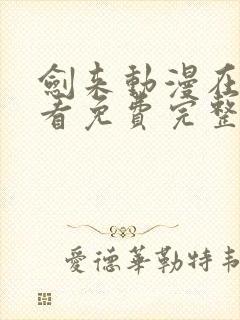 劍来動漫在
看免費完整
愛德華勒特韋